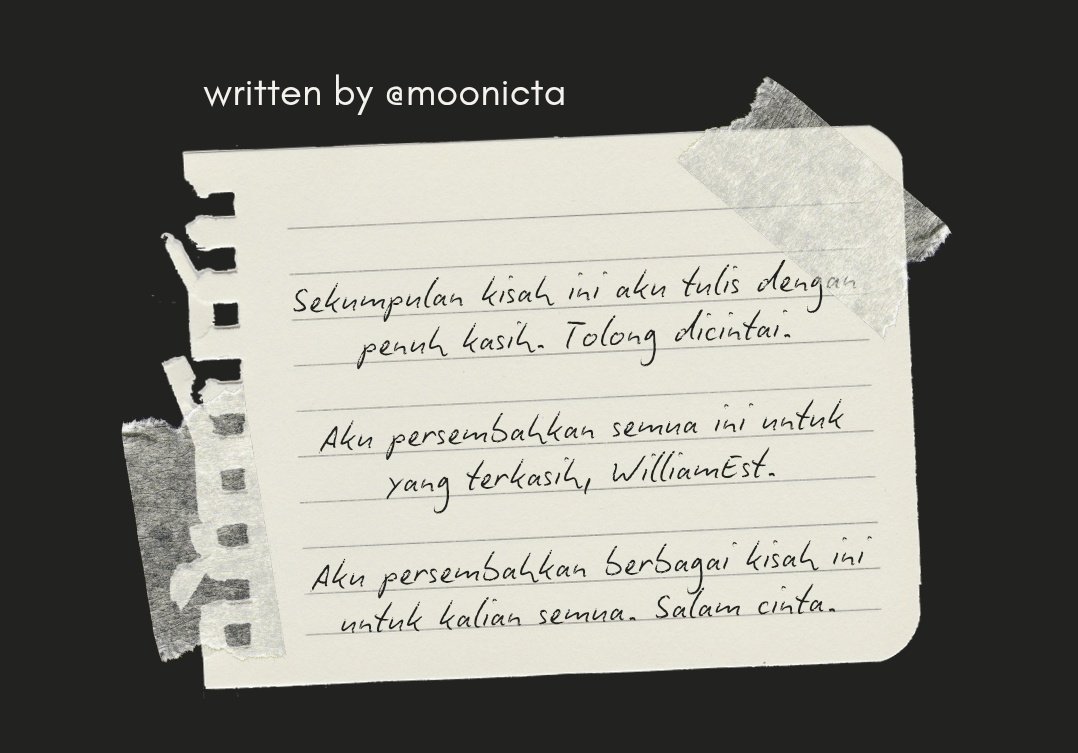 written by @moonicta
Sekumpulan kisah ini aku tulis dengan
penuh kasih. Tolong dicintai.
Aku persembahkan semua ini untuk
yang terkasih, WilliamEst.
Aku persembahkan berbagai kisah ini
untuk kalian semua. Salam cinta.